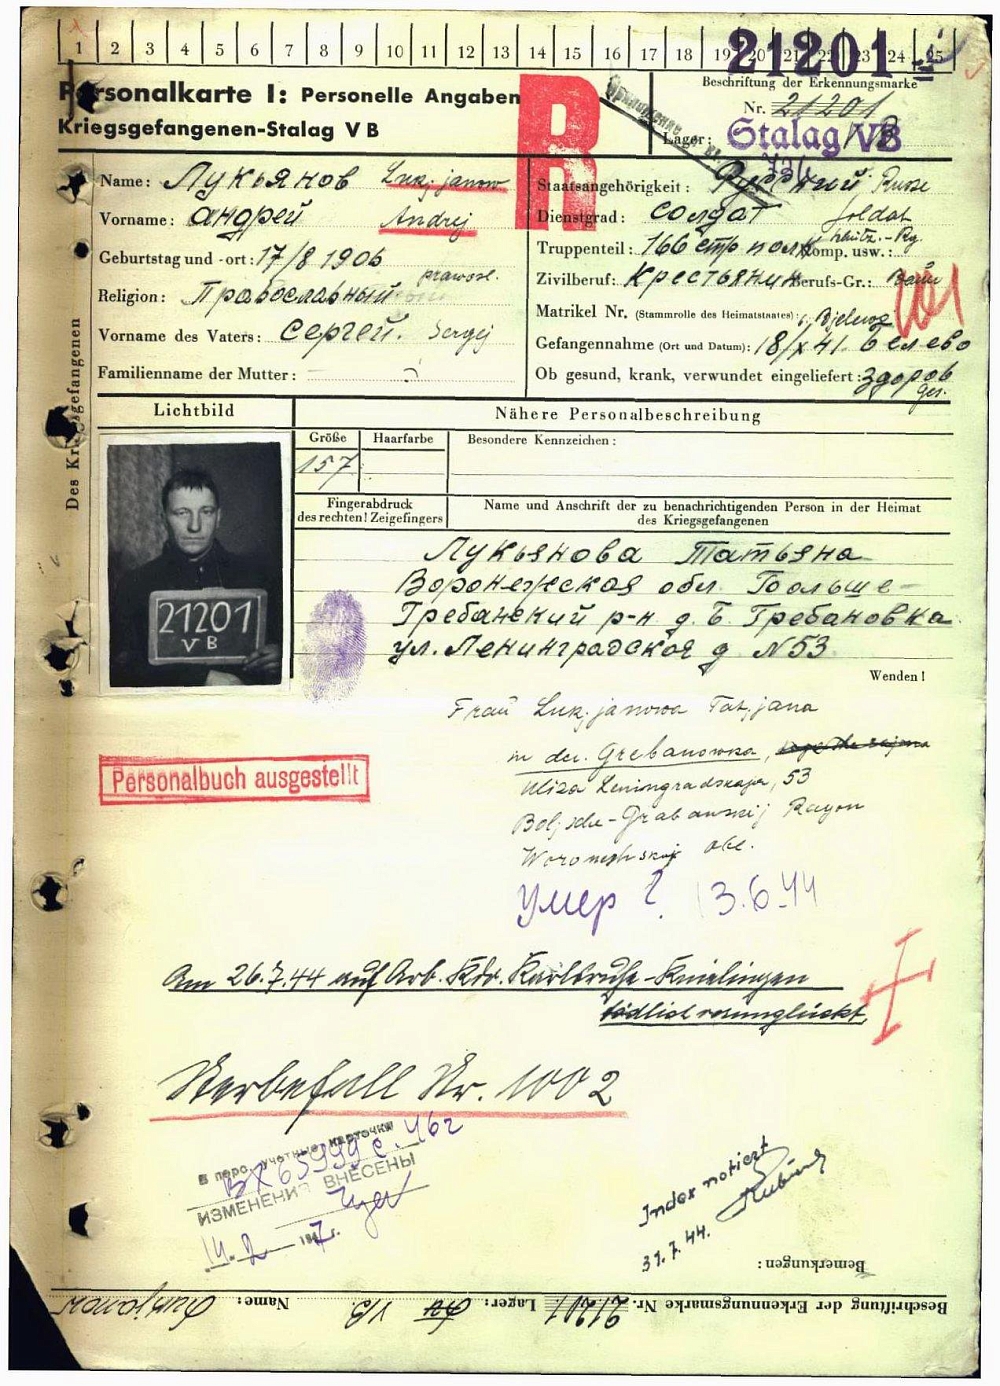 1 2 3 4 5 6 7 8 9 10 11 12 13 14 15 16 17 18 19 20 21 22 23 24 25
21201
Beschriftung der Erkennungsmarke
Personalkarte I: Personelle Angaben
Nr. 21201
Kriegsgefangenen-Stalag V B
Lager: Stalag VB
R
Des Kriegsgefangenen
Name: Лукьянов Lukjanow
Staatsangehörigkeit: Русский Russe
Vorname: Андрей Andrej
Dienstgrad: солдат Soldat
Geburtstag und -ort: 17/8 1906
Truppenteil: 166 стр полк Komp. usw.: Schütz.-Rg.
Religion: Православный prawosl.
Zivilberuf: крестьянин Berufs-Gr.: Bauer
Vorname des Vaters: Сергей. Sergej
Matrikel Nr. (Stammrolle des Heimatstaates):
Gefangennahme (Ort und Datum): 18/X 41. Белево
Familienname der Mutter: ?
Ob gesund, krank, verwundet eingeliefert: здоров ges.
Lichtbild
Nähere Personalbeschreibung
Größe Haarfarbe Besondere Kennzeichen:
157
Fingerabdruck
des rechten! Zeigefingers
Name und Anschrift der zu benachrichtigenden Person in der Heimat
des Kriegsgefangenen
21201
V B
Лукьянова Татьяна
Воронежская обл. Больше-
Гребанский р-н д. Б. Гребановка
ул. Ленинградская д N 53
Wenden!
Frau Lukjanowa Tatjana
in der Grebanowka,
Uliza Leningradskaja, 53
Boljsche-Grabanskij Rayon
Woroneshskaj obl.
Personalbuch ausgestellt
умер 13.6.44
Am 26.7.44 auf Arb. Kdo. Karlsruhe-Knielingen
tödlich verunglückt.
Sterbefall Nr. 1002
В перс. учетные карточки
ВХ 65999с. 46г
ИЗМЕНЕНИЯ ВНЕСЕНЫ
14. 2 1947г.
Index notiert
31.7.44.
Bemerkungen:
Beschriftung der Erkennungsmarke Nr. 21201 Lager: VB Name: Lukjanow